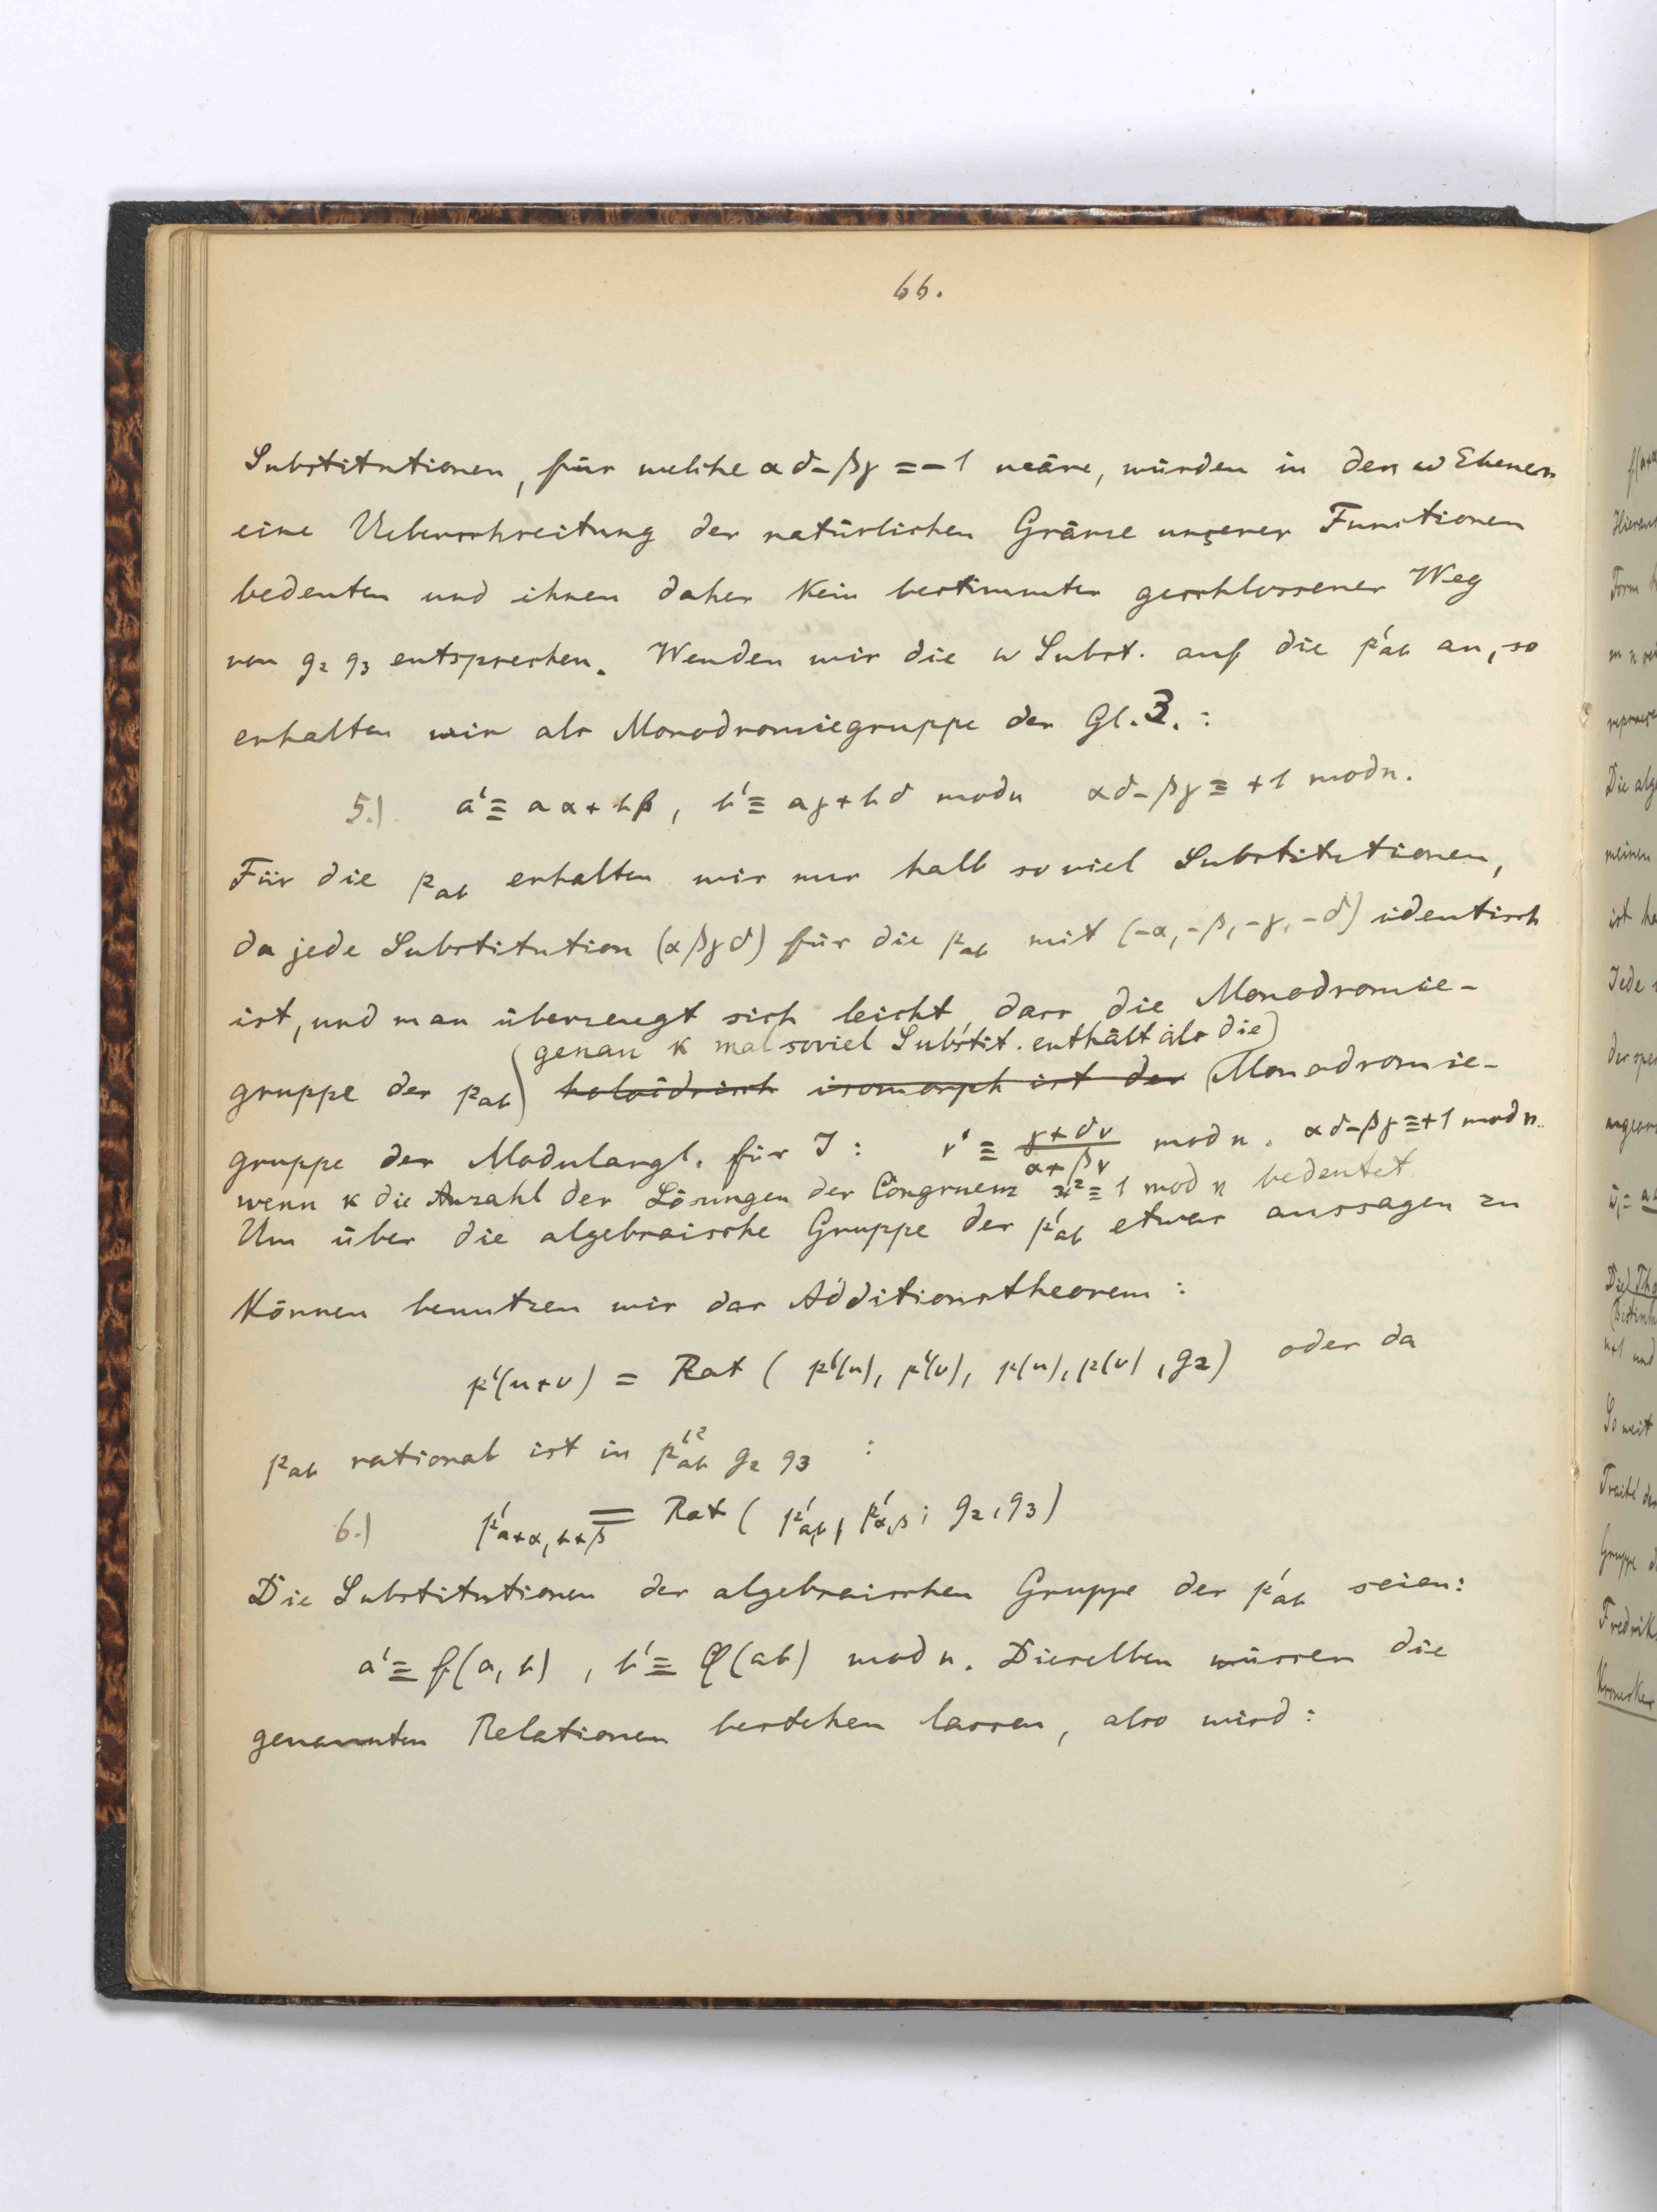 66.
Substitutionen, für welche αδ-βγ = -1 wäre, würden in den ω Ebenen
eine Ueberschreitung der natürlichen Gränze unserer Functionen
bedeuten und ihnen daher kein bestimmter geschlossener Weg
von g₂ g₃ entsprechen. Wenden wir die ω Subst. auf die p'ab an, so
erhalten wir als Monodromiegruppe der Gl. 3. :
5.) a' ≡ aα + bβ, b' ≡ aγ + bδ mod n αδ-βγ ≡ +1 mod n.
Für die pab erhalten wir nur halb so viel Substitutionen,
da jede Substitution (αβγδ) für die pab mit (-α, -β, -γ, -δ) identisch
ist, und man überzeugt sich leicht dass die Monodromie-
genau κ mal soviel Substit. enthält als die
gruppe der pab holoidrisch isomorph ist der Monodromie-
gruppe der Modulargl. für J : ν' ≡ (γ+δν)/(α+βν) mod n. αδ-βγ ≡ +1 mod n.
wenn κ die Anzahl der Lösungen der Congruenz x² ≡ 1 mod n bedeutet
Um über die algebraische Gruppe der p'ab etwas aussagen zu
können benutzen wir das Additionstheorem :
p'(u+v) = Rat ( p'(u), p'(v), p(u), p(v), g₂) oder da
pab rational ist in p'²ab g₂ g₃ :
6.) p'a+α, b+β = Rat ( p'a,b, p'α,β ; g₂, g₃)
Die Substitutionen der algebraischen Gruppe der p'ab seien:
a' ≡ f(a, b) , b' ≡ φ(ab) mod n. Dieselben müssen die
genannten Relationen bestehen lassen, also wird :